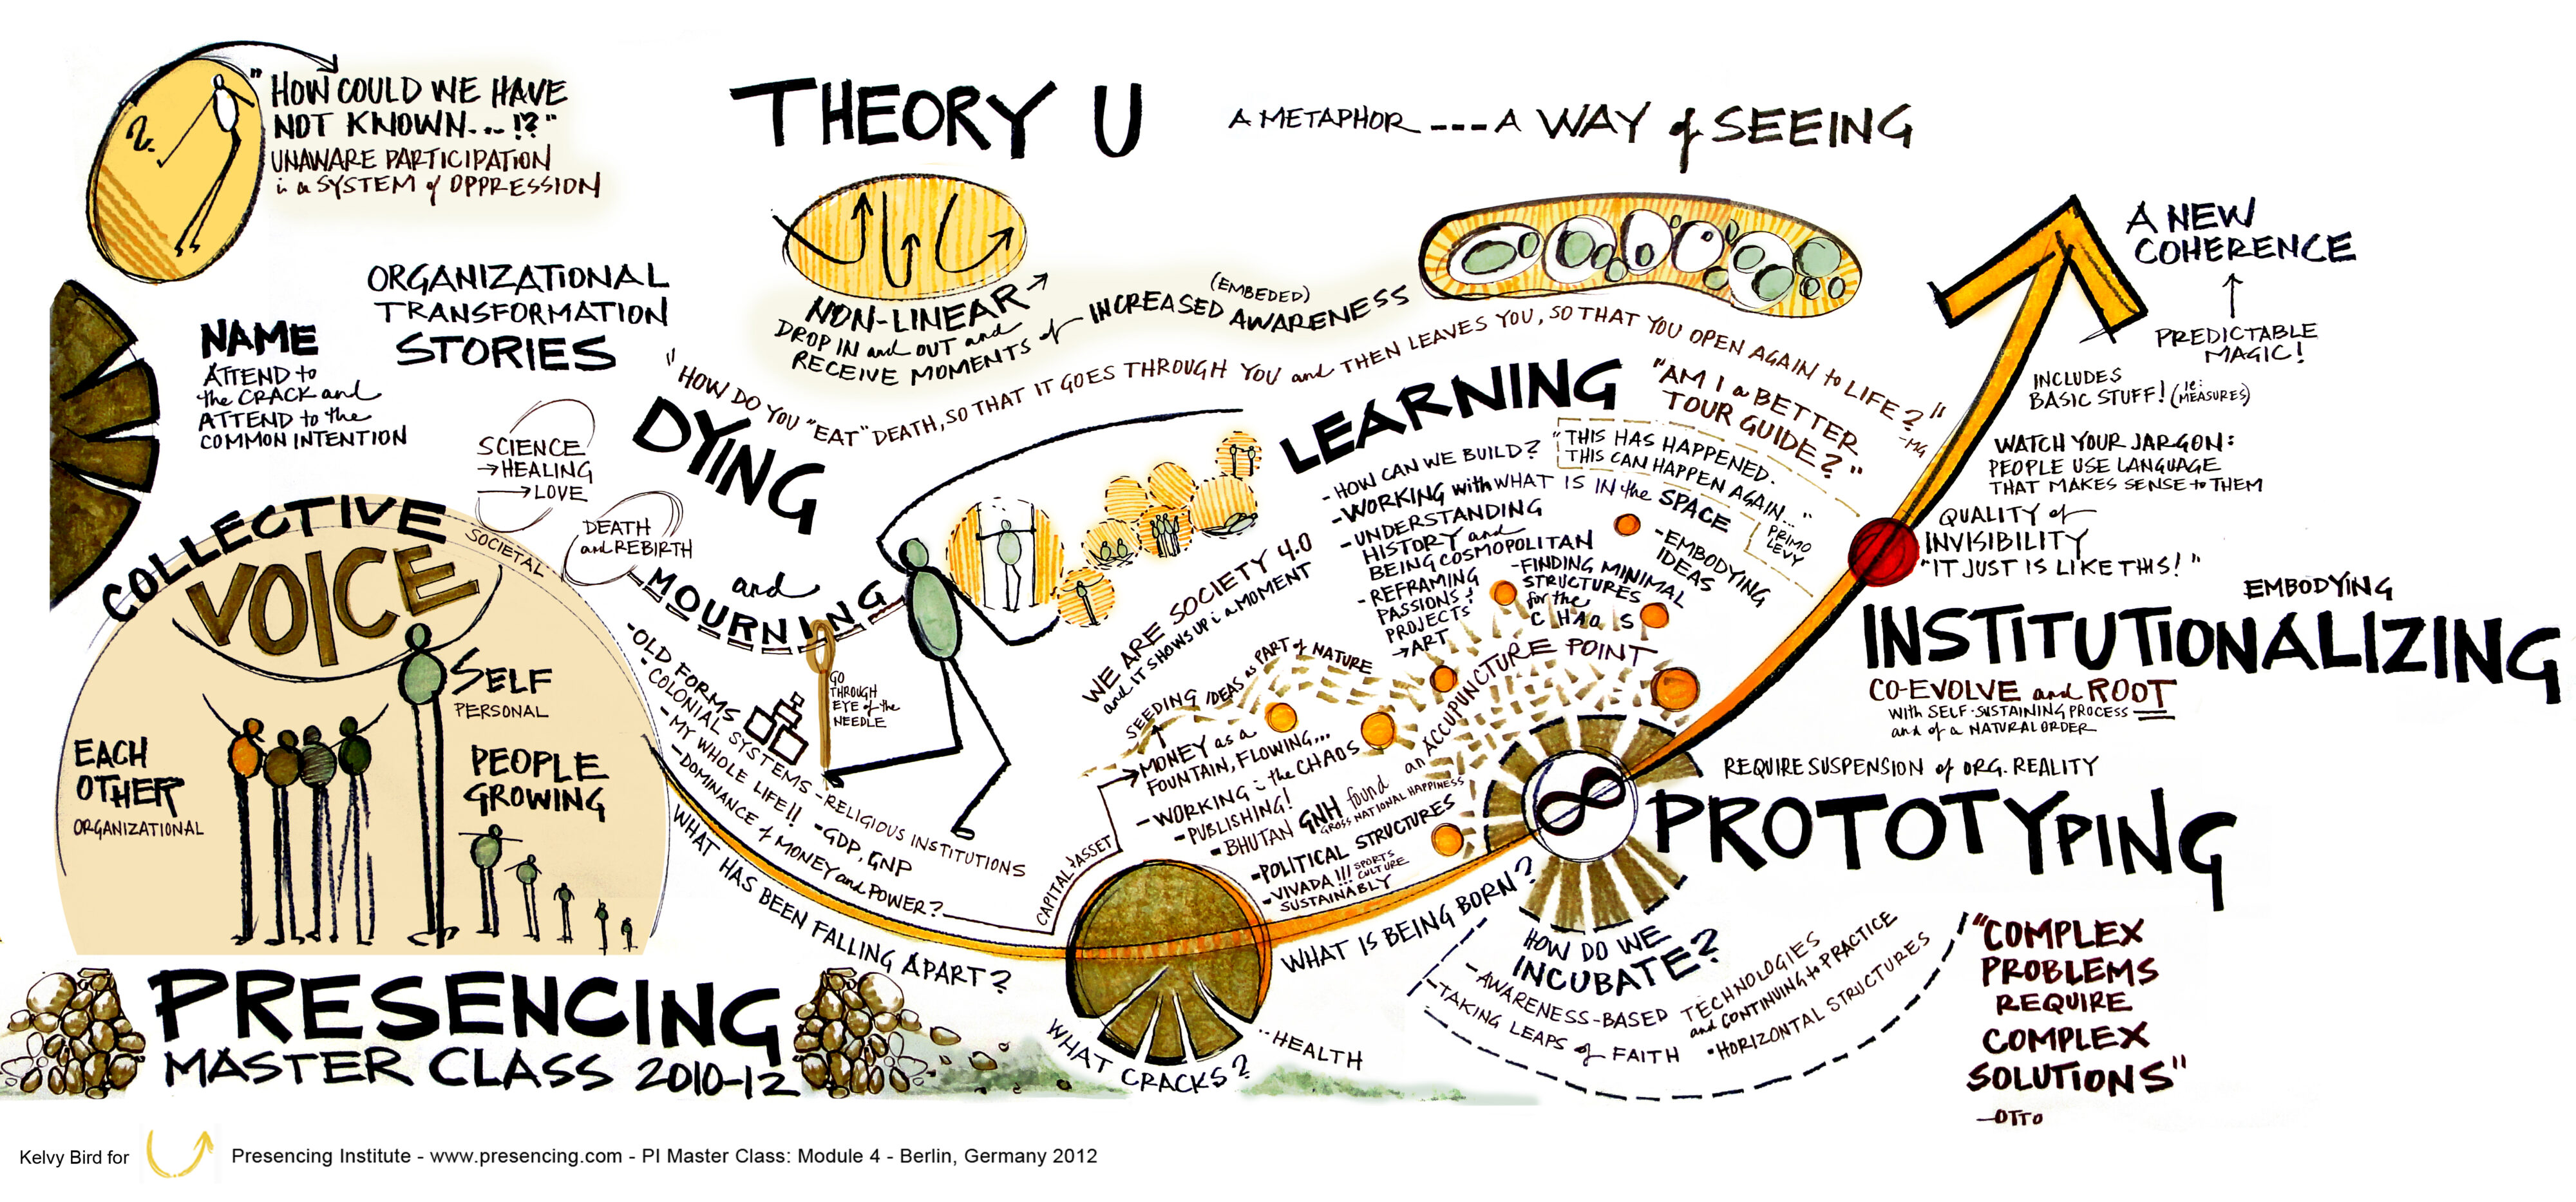 "HOW COULD WE HAVE
NOT KNOWN... !?"
UNAWARE PARTICIPATION
in a SYSTEM of OPPRESSION
THEORY U
A METAPHOR --- A WAY of SEEING
NON-LINEAR
DROP IN and OUT and
RECEIVE MOMENTS of INCREASED AWARENESS
(EMBEDED)
ORGANIZATIONAL
TRANSFORMATION
STORIES
NAME
ATTEND to
the CRACK and
ATTEND to the
COMMON INTENTION
SCIENCE
→ HEALING
→ LOVE
DEATH
and REBIRTH
"HOW DO YOU "EAT" DEATH, SO THAT IT GOES THROUGH YOU and THEN LEAVES YOU, SO THAT YOU OPEN AGAIN to LIFE?"
-MG
COLLECTIVE
VOICE
SOCIETAL
SELF
PERSONAL
EACH
OTHER
ORGANIZATIONAL
PEOPLE
GROWING
DYING
and
MOURNING
GO
THROUGH
EYE of the
NEEDLE
-OLD FORMS
-COLONIAL SYSTEMS
-RELIGIOUS INSTITUTIONS
-MY WHOLE LIFE!!
-GDP, GNP
-DOMINANCE of MONEY and POWER?
WHAT HAS BEEN FALLING APART?
CAPITAL → ASSET
WE ARE SOCIETY 4.0
and IT SHOWS UP in a MOMENT
SEEDING IDEAS as PART of NATURE
MONEY as a
FOUNTAIN, FLOWING...
-WORKING in the CHAOS
-PUBLISHING!
-BHUTAN GNH found an ACCUPUNCTURE POINT
GROSS NATIONAL HAPPINESS
-POLITICAL STRUCTURES
-VIVADA!!! SPORTS
CULTURE
SUSTAINABLY
LEARNING
-HOW CAN WE BUILD?
-WORKING with WHAT IS IN the SPACE
-UNDERSTANDING
HISTORY and
BEING COSMOPOLITAN
-REFRAMING
PASSIONS +
PROJECTS
→ ART
-FINDING MINIMAL
STRUCTURES
for the
CHAOS
-EMBODYING
IDEAS
"THIS HAS HAPPENED.
THIS CAN HAPPEN AGAIN..."
PRIMO
LEVY
"AM I a BETTER
TOUR GUIDE?"
A NEW
COHERENCE
PREDICTABLE
MAGIC!
INCLUDES
BASIC STUFF! (ie: MEASURES)
WATCH YOUR JARGON:
PEOPLE USE LANGUAGE
THAT MAKES SENSE to THEM
QUALITY of
INVISIBILITY
"IT JUST IS LIKE THIS!"
EMBODYING
INSTITUTIONALIZING
CO-EVOLVE and ROOT
WITH SELF-SUSTAINING PROCESS
and of a NATURAL ORDER
REQUIRE SUSPENSION of ORG. REALITY
PROTOTYPING
WHAT IS BEING BORN?
WHAT CRACKS?
...HEALTH
HOW DO WE
INCUBATE?
-AWARENESS-BASED TECHNOLOGIES
and CONTINUING to PRACTICE
-TAKING LEAPS of FAITH
•HORIZONTAL STRUCTURES
"COMPLEX
PROBLEMS
REQUIRE
COMPLEX
SOLUTIONS"
-OTTO
PRESENCING
MASTER CLASS 2010-12
Kelvy Bird for Presencing Institute - www.presencing.com - PI Master Class: Module 4 - Berlin, Germany 2012